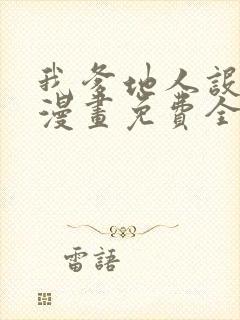 我爹地人設
漫畫免費全
雷語